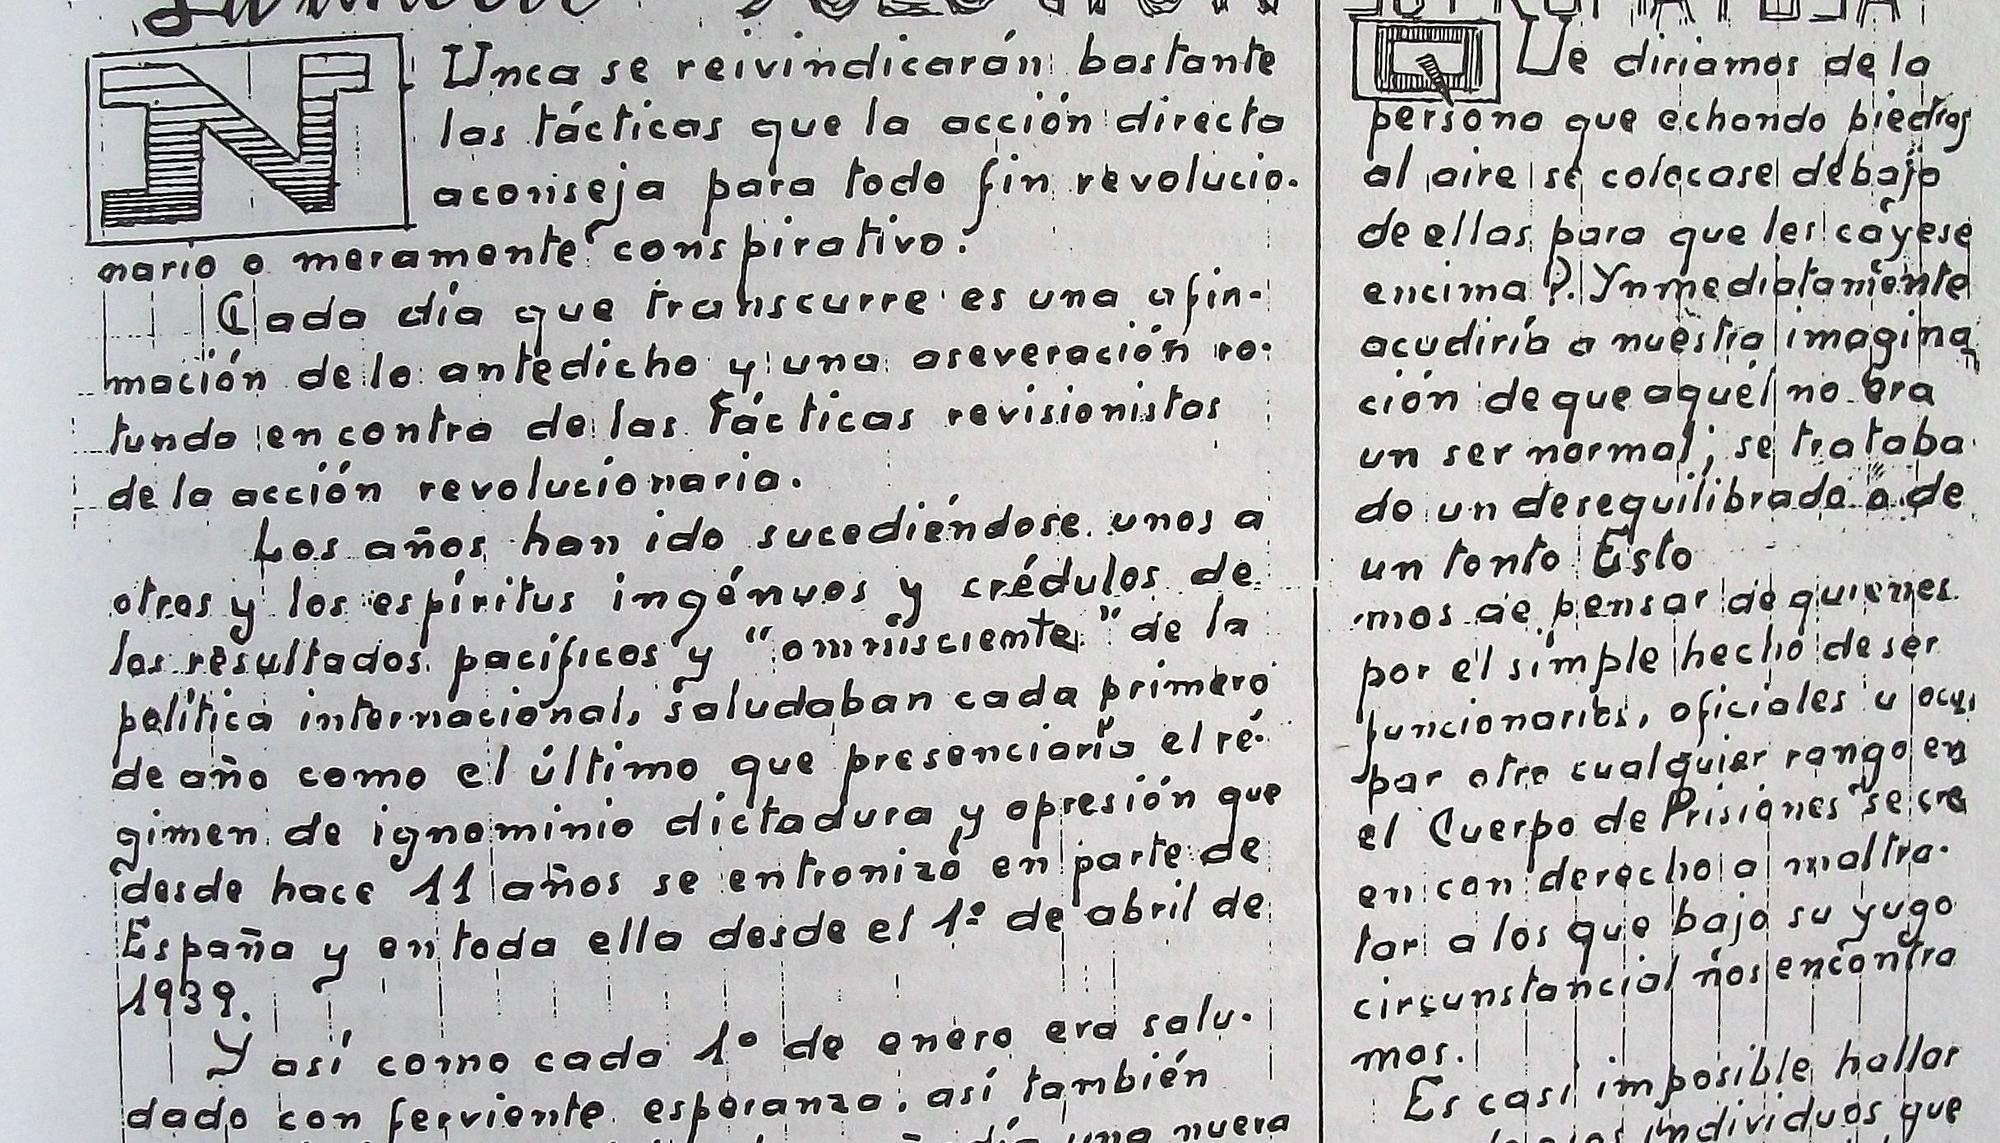 Unca se reivindicarán bastante
las tácticas que la acción directa
aconseja para todo fin revolucio-
nario o meramente conspirativo.
Cada día que transcurre es una afin-
mación de lo antedicho y una aseveración ro-
tunda en contra de las tácticas revisionistas
de la acción revolucionaria.
Los años han ido sucediéndose unos a
otros y los espíritus ingénuos y crédulos de
los resultados pacíficos y "omnisciente" de la
política internacional, saludaban cada primero
de año como el último que presenciaría el ré-
gimen de ignominio dictadura y opresión que
desde hace 11 años se entronizó en parte de
España y en toda ella desde el 1º de abril de
1939.
Y así como cada 1º de enero era salu-
dado con ferviente esperanza, así también
una nueva
Ue diriamos de la
persona que echando piedras
al aire se colocase debajo
de ellas para que les cáyese
encima?. Ynmediatamente
acudiría a nuestra imagina
ción de que aquél no era
un ser normal; se trataba
do un desequilibrado o de
un tonto Esto
mos de pensar de quienes
por el simple hecho de ser
funcionarios, oficiales u ocu
par otro cualquier rango en
el Cuerpo de Prisiones se cre
en con derecho a maltra-
tar a los que bajo su yugo
circunstancial nos encontra
mos.
Es casi imposible hallar
individuos que